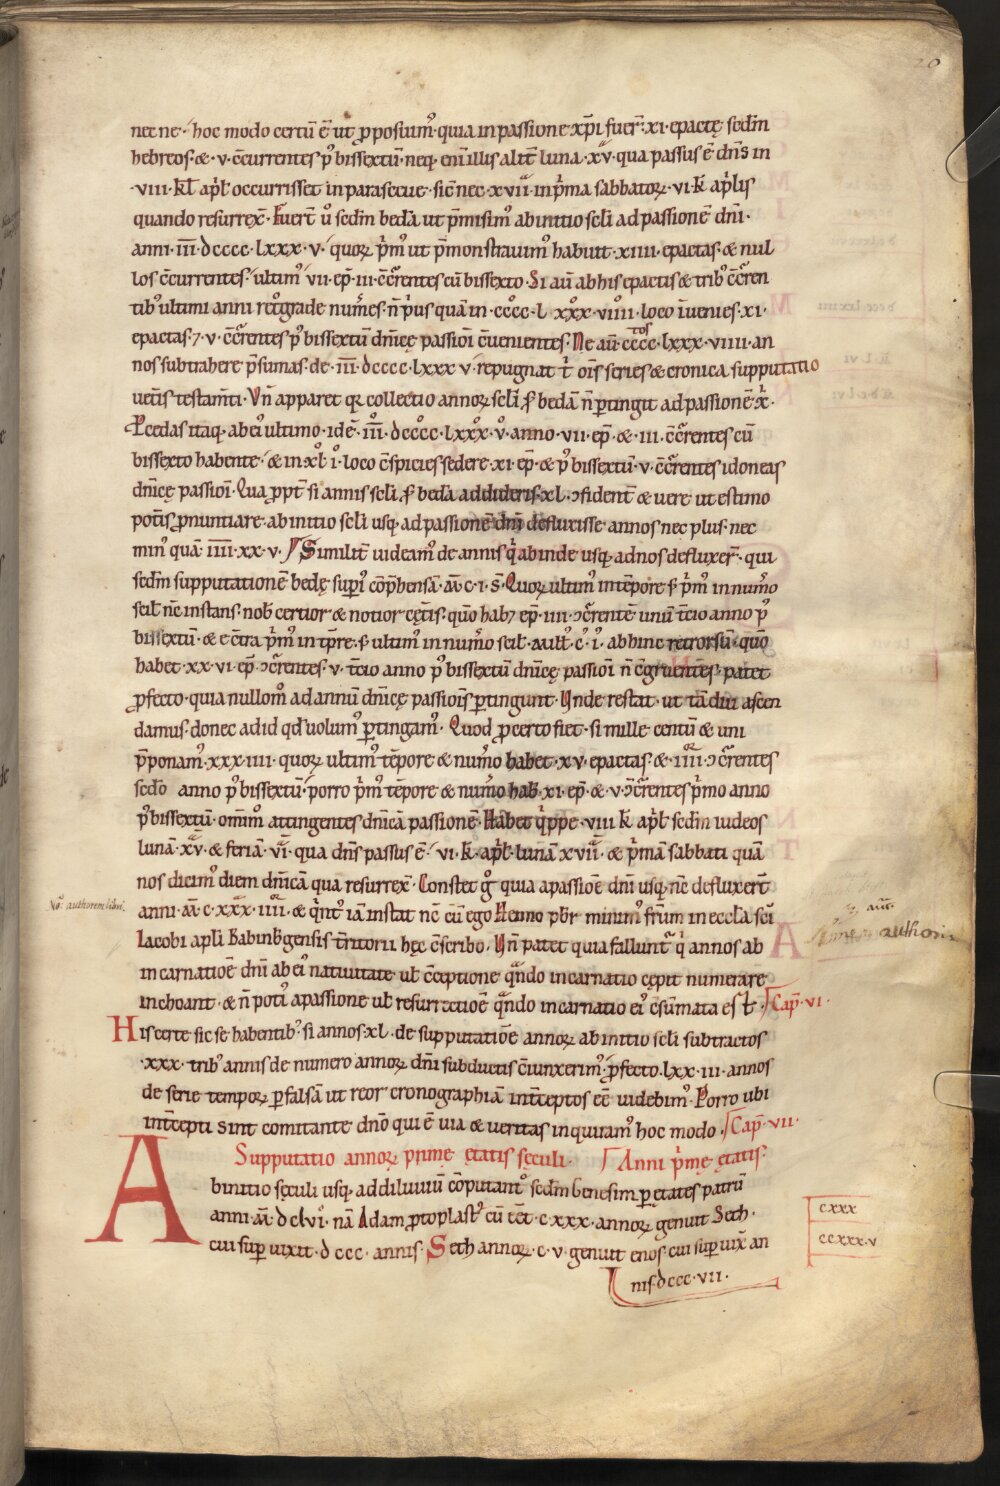 20
nec ne · hoc modo certū ē ut ꝓposuim᷒ · quia in passione xp̄i fuer̄ · xi · epactę sedm̄
hebreos · & · v · c̄currentes p᷒ bissextū · neq; eni illis alit̄ luna · xv · qua passus ē dn̄s in
· viii · kl̄ apl̄ occurrisset in parasceue · sic nec · xvii · in p̄ma sabbatoꝝ · vi · k̄ aplis
quando resurrex̄ · Fuer̄t ū sedm̄ beda ut p̄misim᷒ ab initio scl̄i ad passionē dn̄i ·
anni · iii · dcccc · lxxx · v · quoꝝ p̄m᷒ ut p̄monstrauim᷒ habuit · xiiii · epactas · & nul
los c̄currentes · ultim᷒ vii · ep̄ · iii · c̄c̄rentes cū bissexto · Si aū ab his epactis & trib᷒ c̄c̄ren
tib᷒ ultimi anni ret̄grade num̄es · n̄ p̄us quā in · cccc · l xxx · viiii · loco iuenies · xi ·
epactas · 7 · v · c̄c̄rentes p᷒ bissextū dn̄icę passioi c̄uenientes · Ne aū · cccc · lxxx · viiii · an
nos subtrahere p̄sumas · de · iii · dcccc · lxxx v · repugnat t̄ ois̄ series & cronica supputatio
uet̄is testam̄ti · Vn̄ apparet qꝛ collectio annoꝝ scl̄i s̄ bedā n̄ ptingit ad passionē x̄ ·
Pcedas itaq; ab ei ultimo · idē · iii · dcccc · lxxx · v · anno · vii · ep̄ · & · iii · c̄c̄rentes cū
bissexto habente · & in · xl i · loco c̄spicies sedere · xi · ep̄ · & p᷒ bissextū · v · c̄c̄rentes idoneas
dn̄icę passioi · Qua ꝓpt̄ si annis scl̄i s̄ bedā addideris · xl · ɔfident̄ & uere ut estimo
potis̄ ꝓnuntiare · ab initio scl̄i usq; ad passionē dn̄i defluxisse annos nec plus · nec
min᷒ quā · iiii · xx · v · Similit̄ uideam᷒ de annis q̄ abinde usq; ad nos defluxer̄ · qui
sedm̄ supputationē bedę supi᷒ cōp̄hensā · m̄ · c · i · s̄ · Quoꝝ ultim᷒ in tēpore s̄ p̄m᷒ in num̄o
scil · nc̄ instans · nob̄ certior & notior cęt̄is · quō hab; ep̄ · iiii · ɔc̄rentē unū t̄cio anno p᷒
bissextū · & ec̄tra p̄m᷒ in tp̄re · s̄ ultim᷒ in num̄o scil · mill̄ · c · i · abhinc retrorsū · quō
habet · xx · vi · ep̄ · ɔc̄rentes · v · t̄cio anno p᷒ bissextū dn̄icę passioi n̄ c̄gruentes · patet
ꝓfecto · quia nullom᷒ ad annū dn̄icę passiois̄ ptingunt · Vnde restat · ut tā diu ascen
damus · donec ad id qd̄ uolum᷒ ptingam᷒ · Quod ꝓcerto fiet · si mille centū & uni
p̄ponam᷒ · xxx · iiii · quoꝝ ultim᷒ tēpore & num̄o habet · xv · epactas · & · iiii · ɔc̄rentes
sedo anno p᷒ bissextū · porro p̄m᷒ tēpore & num̄o hab̄ · xi · ep̄ · & · v · ɔc̄rentes p̄mo anno
p᷒ bissextū · omnim᷒ attingentes dn̄icā passionē · Habet q̄ppe · viii k̄ apl̄ · sedm̄ iudeos
lunā · xv · & feriā · vi · qua dn̄s passus ē · vi · k̄ · apl̄ · lunā xvii · & p̄mā sabbati quā
nos dicim᷒ diem dn̄icā qua resurrex̄ · Constet ḡ quia a passioē dn̄i usq; nc̄ defluxer̄t
anni · m̄ · c · xxx · iiii · & q̄nt᷒ iā instat nc̄ cū ego Henno pbr̄ minim᷒ frūm in eccl̄a sci
Iacobi apl̄i Babinb̄gensis t̄ritorii hęc c̄scribo · Vn̄ patet quia fallunt᷒ q̄ annos ab
incarnatioē dn̄i ab ei nativitate ul̄ c̄ceptione q̄ndo incarnatio cępit numerare
inchoant · & n̄ poti᷒ a passione ul̄ resurrectioē q̄ndo incarnatio ei᷒ c̄sūmata est · Cap̄ · VI ·
His certe sic se habentib᷒ · si annos · xl · de supputatioē annoꝝ ab initio scl̄i subtractos
· xxx · trib᷒ annis de numero annoꝝ dn̄i subductis c̄iunxerim᷒ · ꝓfecto · lxx · iii · annos
de serie tempoꝝ p falsā ut reor cronographiā int̄ceptos eē uidebim᷒ · Porro ubi
int̄cepti sint comitante dn̄o qui ē uia & ueritas inquiram᷒ hoc modo · Cap̄ · VII ·
Supputatio annoꝝ prime ętatis sęculi · Anni p̄mę ętatis ·
Abinitio sęculi usq; ad diluuiū cōputant᷒ sedm̄ Genesim p ętates patrū
anni · m̄ · dclvi · nā Adam ꝓtoplast᷒ cū eēt · cxxx · annoꝝ genuit Seth ·
cui sup uixit · dccc · annis · Seth annoꝝ · c · v · genuit enos · cui sup uix̄ an
nis · dccc · vii ·
cxxx
ccxxx · v
No: authorem libri ·
author